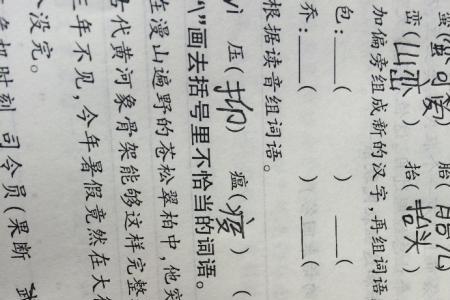 蛮(蛮可爱) 胎(胎儿
峦(山峦) 抬(抬头)
加偏旁组成新的汉字,再组词语
包:____( ) ____(
乔:____( ) ____(
根据读音组词语。
yì 压(抑) 瘟(疫) (
"\"画去括号里不恰当的词语。
在漫山遍野的苍松翠柏中,他突
代黄河象骨架能够这样完整
三年不见,今年暑假竟然在大
没完。
机时刻,司令员(果断 武